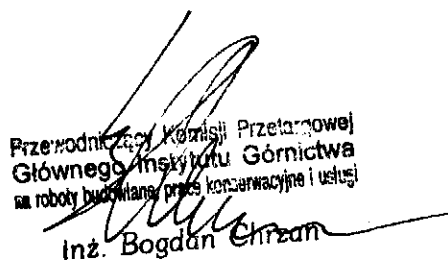 Przewodniczący Komisji Przetargowej
Głównego Instytutu Górnictwa
na roboty budowlane, prace konserwacyjne i usługi
inż. Bogdan Chrzan